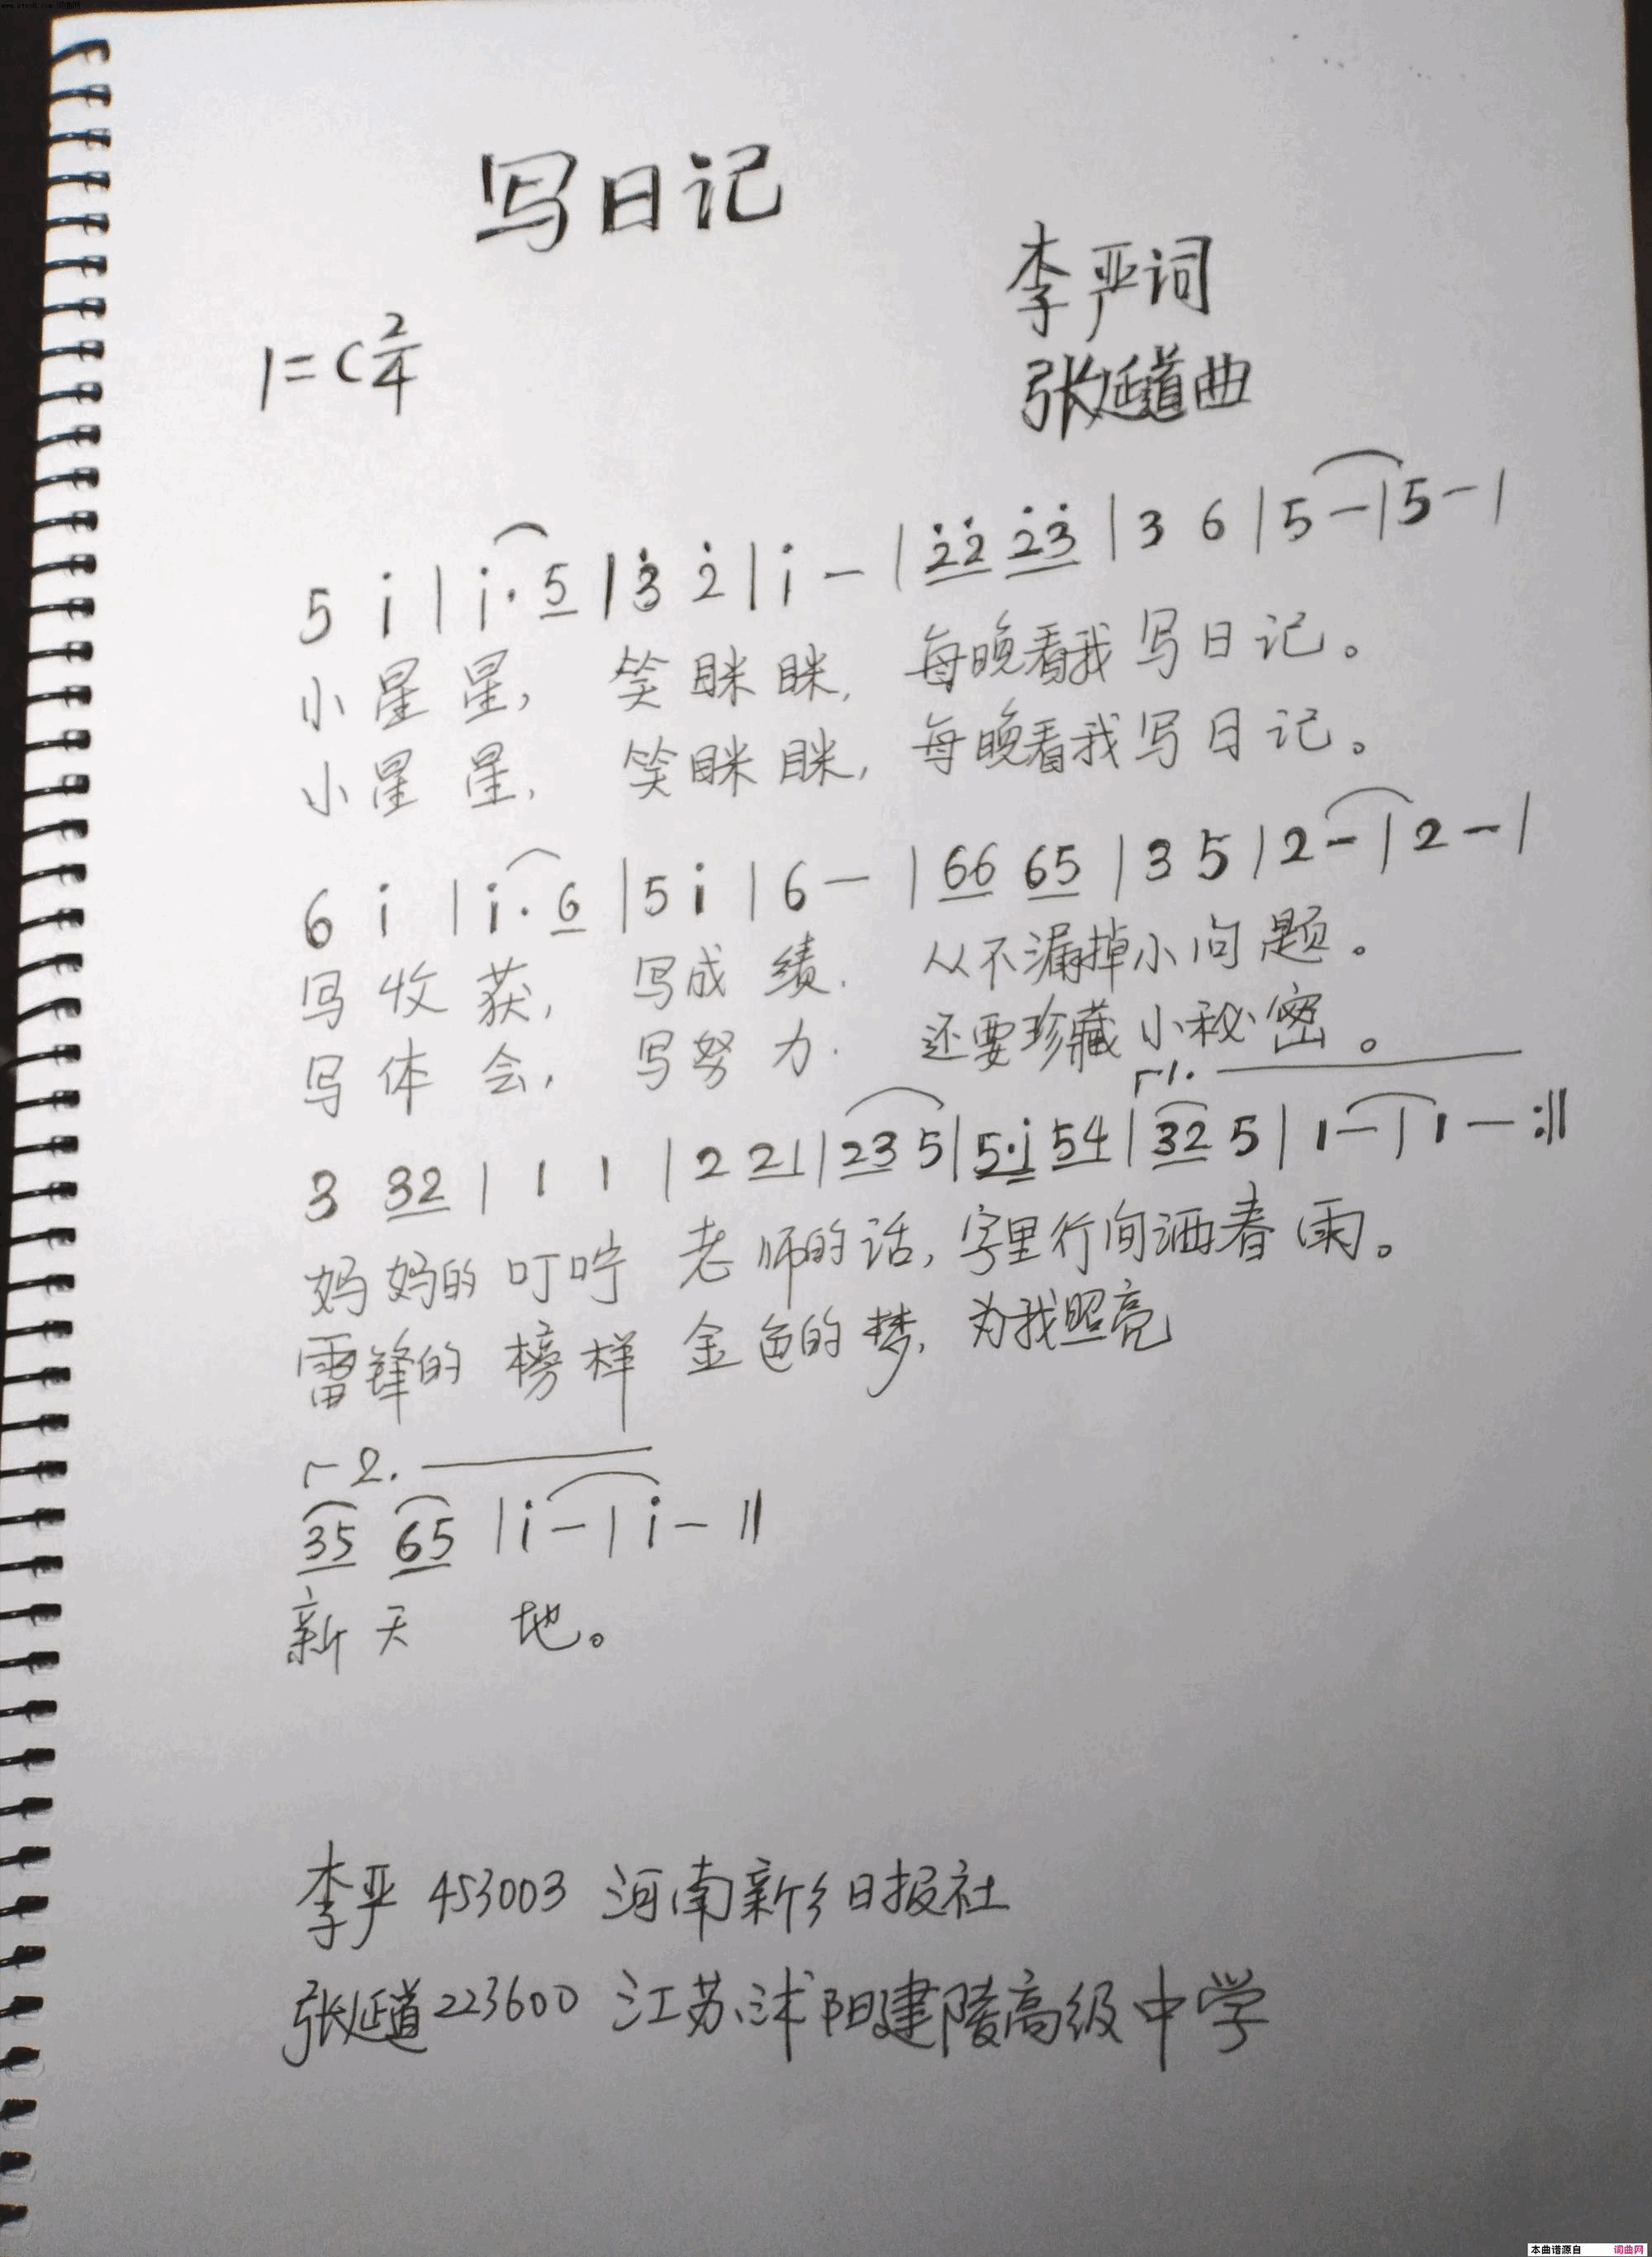 写日记
李严词
1=C 2/4
张延道曲
5 i̇ | i̇· 5 | 3̇ 2̇ | i̇ — | 2̇2̇ 2̇3̇ | 3 6 | 5 — | 5 — |
小星星, 笑眯眯, 每晚看我写日记。
小星星, 笑眯眯, 每晚看我写日记。
6 i̇ | i̇· 6 | 5 i̇ | 6 — | 66 65 | 3 5 | 2 — | 2 — |
写收获, 写成绩. 从不漏掉小问题。
写体会, 写努力. 还要珍藏小秘密。
1.
3 32 | 1 1 | 2 21 | 23 5 | 5·i̇ 54 | 32 5 | 1 — | 1 — :‖
妈妈的叮咛 老师的话, 字里行间洒春雨。
雷锋的榜样 金色的梦, 为我照亮
2.
35 65 | i̇ — | i̇ — ‖
新天地。
李严 453003 河南新乡日报社
张延道 223600 江苏沭阳建陵高级中学
本曲谱源自 词曲网